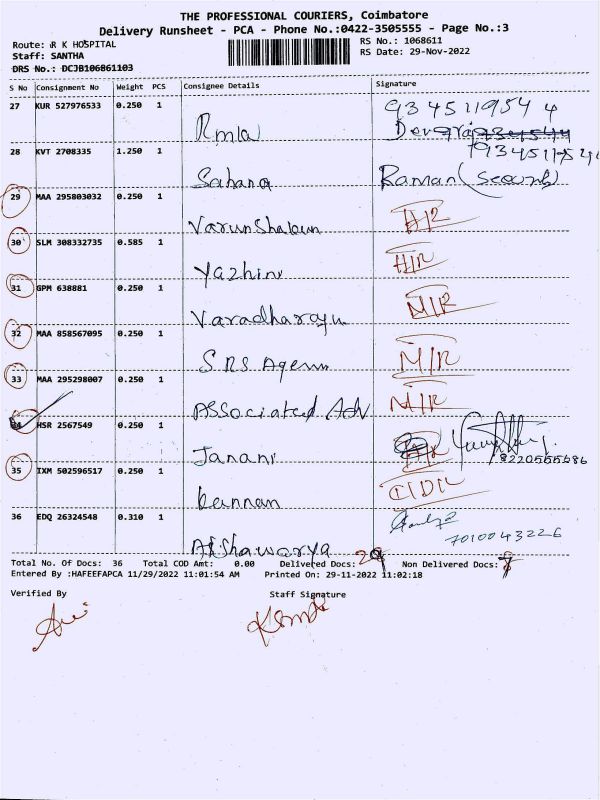 THE PROFESSIONAL COURIERS, Coimbatore
Delivery Runsheet - PCA - Phone No.:0422-3505555 - Page No.:3
Route: R K HOSPITAL
RS No.: 1068611
Staff: SANTHA
RS Date: 29-Nov-2022
DRS No.: DCJB106861103
S No Consignment No Weight PCS Consignee Details Signature
27 KUR 527976533 0.250 1
9345119544
Rmla
28 KVT 2708335 1.250 1
Sahana Raman
29 MAA 295803032 0.250 1
Varun Shalaun
30 SLM 308332735 0.585 1
Yazhini
31 GPM 638881 0.250 1 M/R
Varadharaju
32 MAA 858567095 0.250 1
S.R.S Agenn M/R
33 MAA 295298007 0.250 1
Associated Adv M/R
34 HSR 2567549 0.250 1
Janani 8220555686
35 IXM 502596517 0.250 1
kannan
36 EDQ 26324548 0.310 1
7010043226
Aishawarya
Total No. Of Docs: 36 Total COD Amt: 0.00 Delivered Docs: 29 Non Delivered Docs: 7
Entered By :HAFEEFAPCA 11/29/2022 11:01:54 AM Printed On: 29-11-2022 11:02:18
Verified By Staff Signature